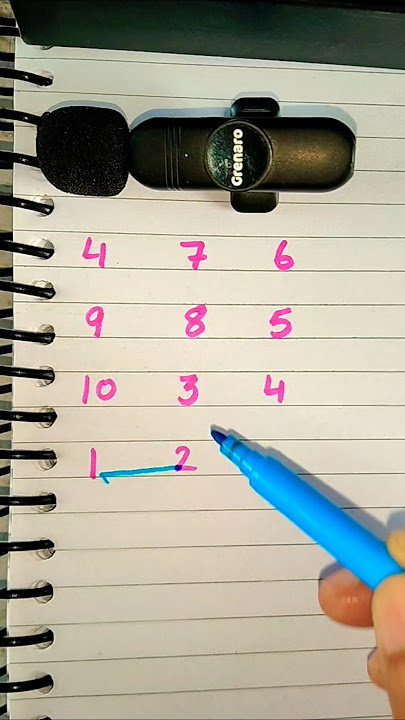 Grenaro
4 7 6
9 8 5
10 3 4
1 2